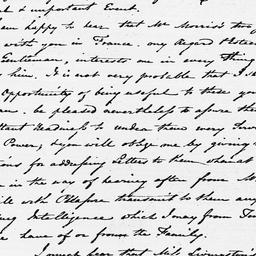 & important Event.
am happy to hear that Mr Morris's
with you in France. my Regard
Gentleman, interests me in every thing
him. It is not very probable that I
Opportunity of being useful to those
be pleased nevertheless to assure
Readiness to render them every
Power, & you will oblige me by giving
for addressing Letters to them
in the way of hearing often from
with Pleasure transmit to them any
Intelligence which I may from
have of or from the Family.
I much fear that Mrs Livingston's